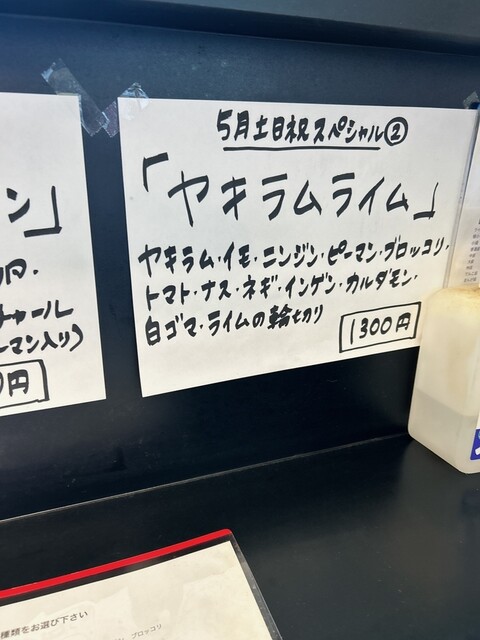 5月土日祝スペシャル②
「ヤキラムライム」
ヤキラム・イモ・ニンジン・ピーマン・ブロッコリ・
トマト・ナス・ネギ・インゲン・カルダモン・
白ゴマ・ライムの輪切り
1300円
ン」
チャール
ーマン入り)
円
種類をお選び下さい
ブロッコリ